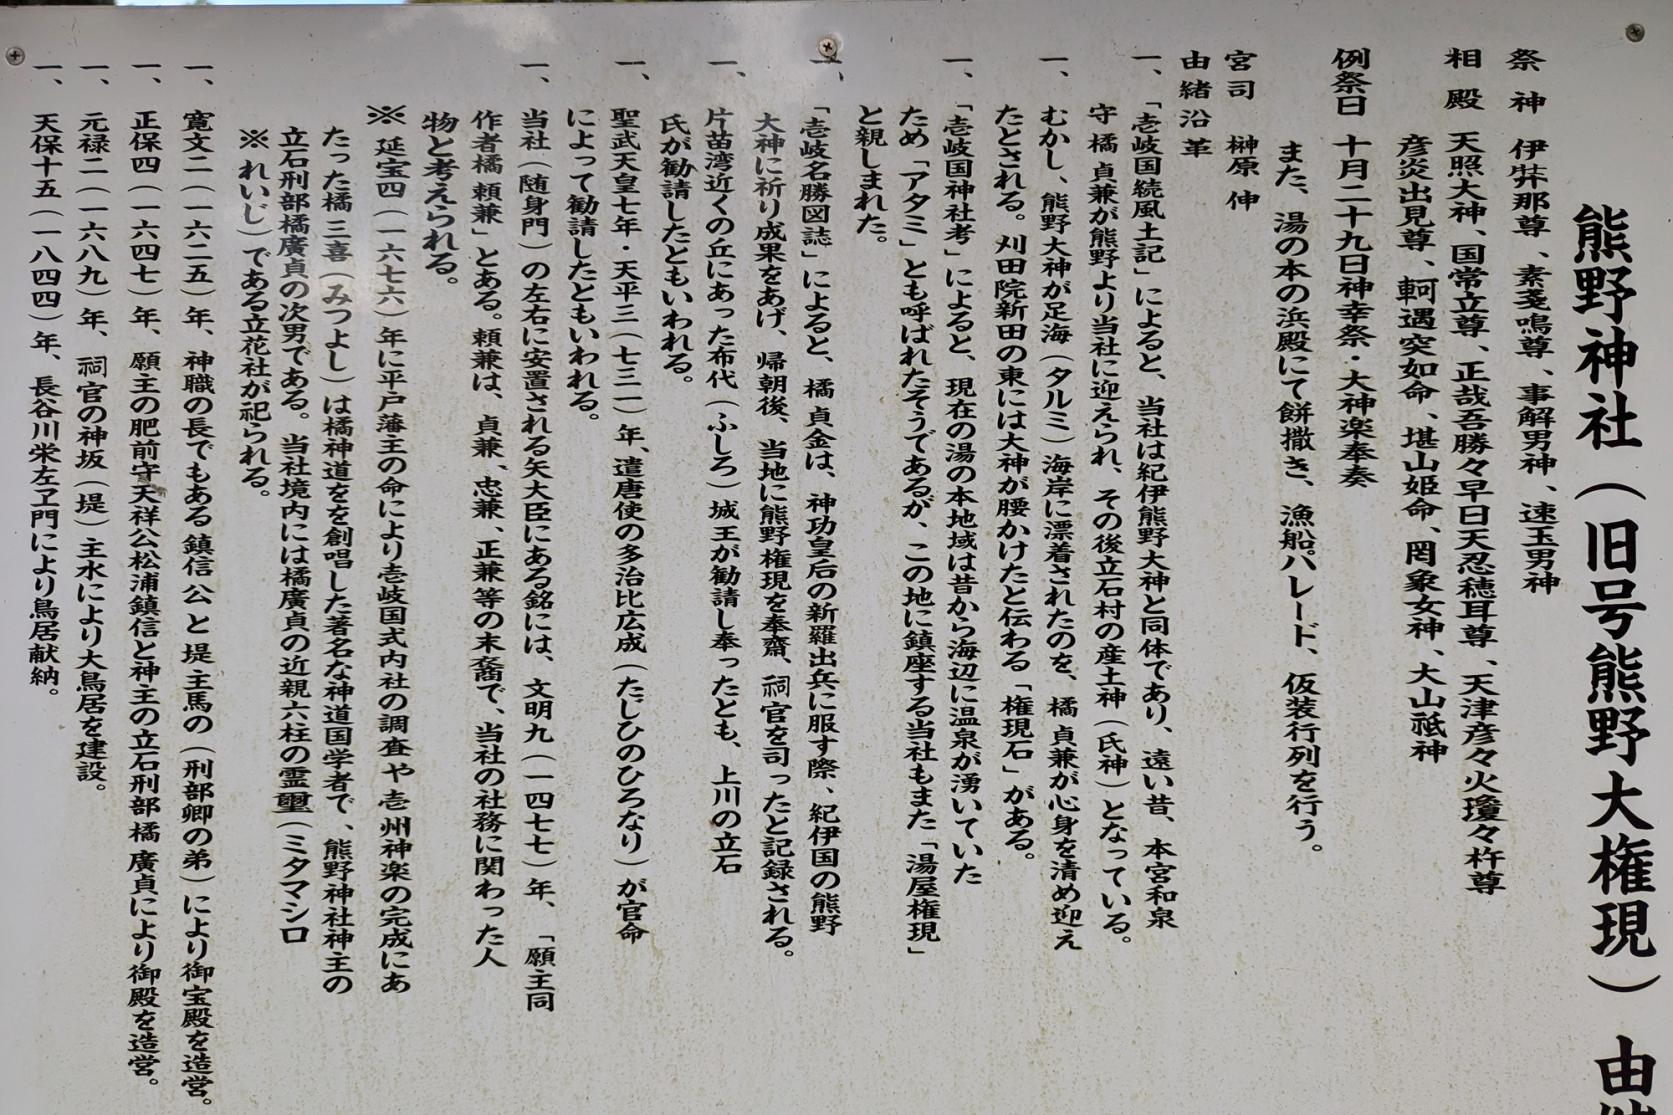 熊野神社（旧号熊野大権現）由緒
祭神 伊弉那尊、素戔鳴尊、事解男神、速玉男神
相殿 天照大神、国常立尊、正哉吾勝々早日天忍穂耳尊、天津彦々火瓊々杵尊
彦炎出見尊、軻遇突如命、堪山姫命、罔象女神、大山祗神
例祭日 十月二十九日神幸祭・大神楽奉奏
また、湯の本の浜殿にて餅撒き、漁船パレード、仮装行列を行う。
宮司 榊原伸
由緒沿革
一、「壱岐国続風土記」によると、当社は紀伊熊野大神と同体であり、遠い昔、本宮和泉
守橘貞兼が熊野より当社に迎えられ、その後立石村の産土神（氏神）となっている。
一、むかし、熊野大神が足海（タルミ）海岸に漂着されたのを、橘貞兼が心身を清め迎え
たとされる。刈田院新田の東には大神が腰かけたと伝わる「権現石」がある。
一、「壱岐国神社考」によると、現在の湯の本地域は昔から海辺に温泉が湧いていた
ため「アタミ」とも呼ばれたそうであるが、この地に鎮座する当社もまた「湯屋権現」
と親しまれた。
一、「壱岐名勝図誌」によると、橘貞金は、神功皇后の新羅出兵に服す際、紀伊国の熊野
大神に祈り成果をあげ、帰朝後、当地に熊野権現を奉齋、祠官を司ったと記録される。
一、片苗湾近くの丘にあった布代（ふしろ）城王が勧請し奉ったとも、上川の立石
氏が勧請したともいわれる。
一、聖武天皇七年・天平三（七三一）年、遣唐使の多治比広成（たじひのひろなり）が官命
によって勧請したともいわれる。
一、当社（随身門）の左右に安置される矢大臣にある銘には、文明九（一四七七）年、「願主同
作者橘頼兼」とある。頼兼は、貞兼、忠兼、正兼等の末裔で、当社の社務に関わった人
物と考えられる。
※延宝四（一六七六）年に平戸藩主の命により壱岐国式内社の調査や壱州神楽の完成にあ
たった橘三喜（みつよし）は橘神道をを創唱した著名な神道国学者で、熊野神社神主の
立石刑部橘廣貞の次男である。当社境内には橘廣貞の近親六柱の霊璽（ミタマシロ
※れいじ）である立花社が祀られる。
一、寛文二（一六二五）年、神職の長でもある鎮信公と堤主馬の（刑部卿の弟）により御宝殿を造営。
一、正保四（一六四七）年、願主の肥前守天祥公松浦鎮信と神主の立石刑部橘廣貞により御殿を造営。
一、元禄二（一六八九）年、祠官の神坂（堤）主水により大鳥居を建設。
一、天保十五（一八四四）年、長谷川栄左ヱ門により鳥居献納。